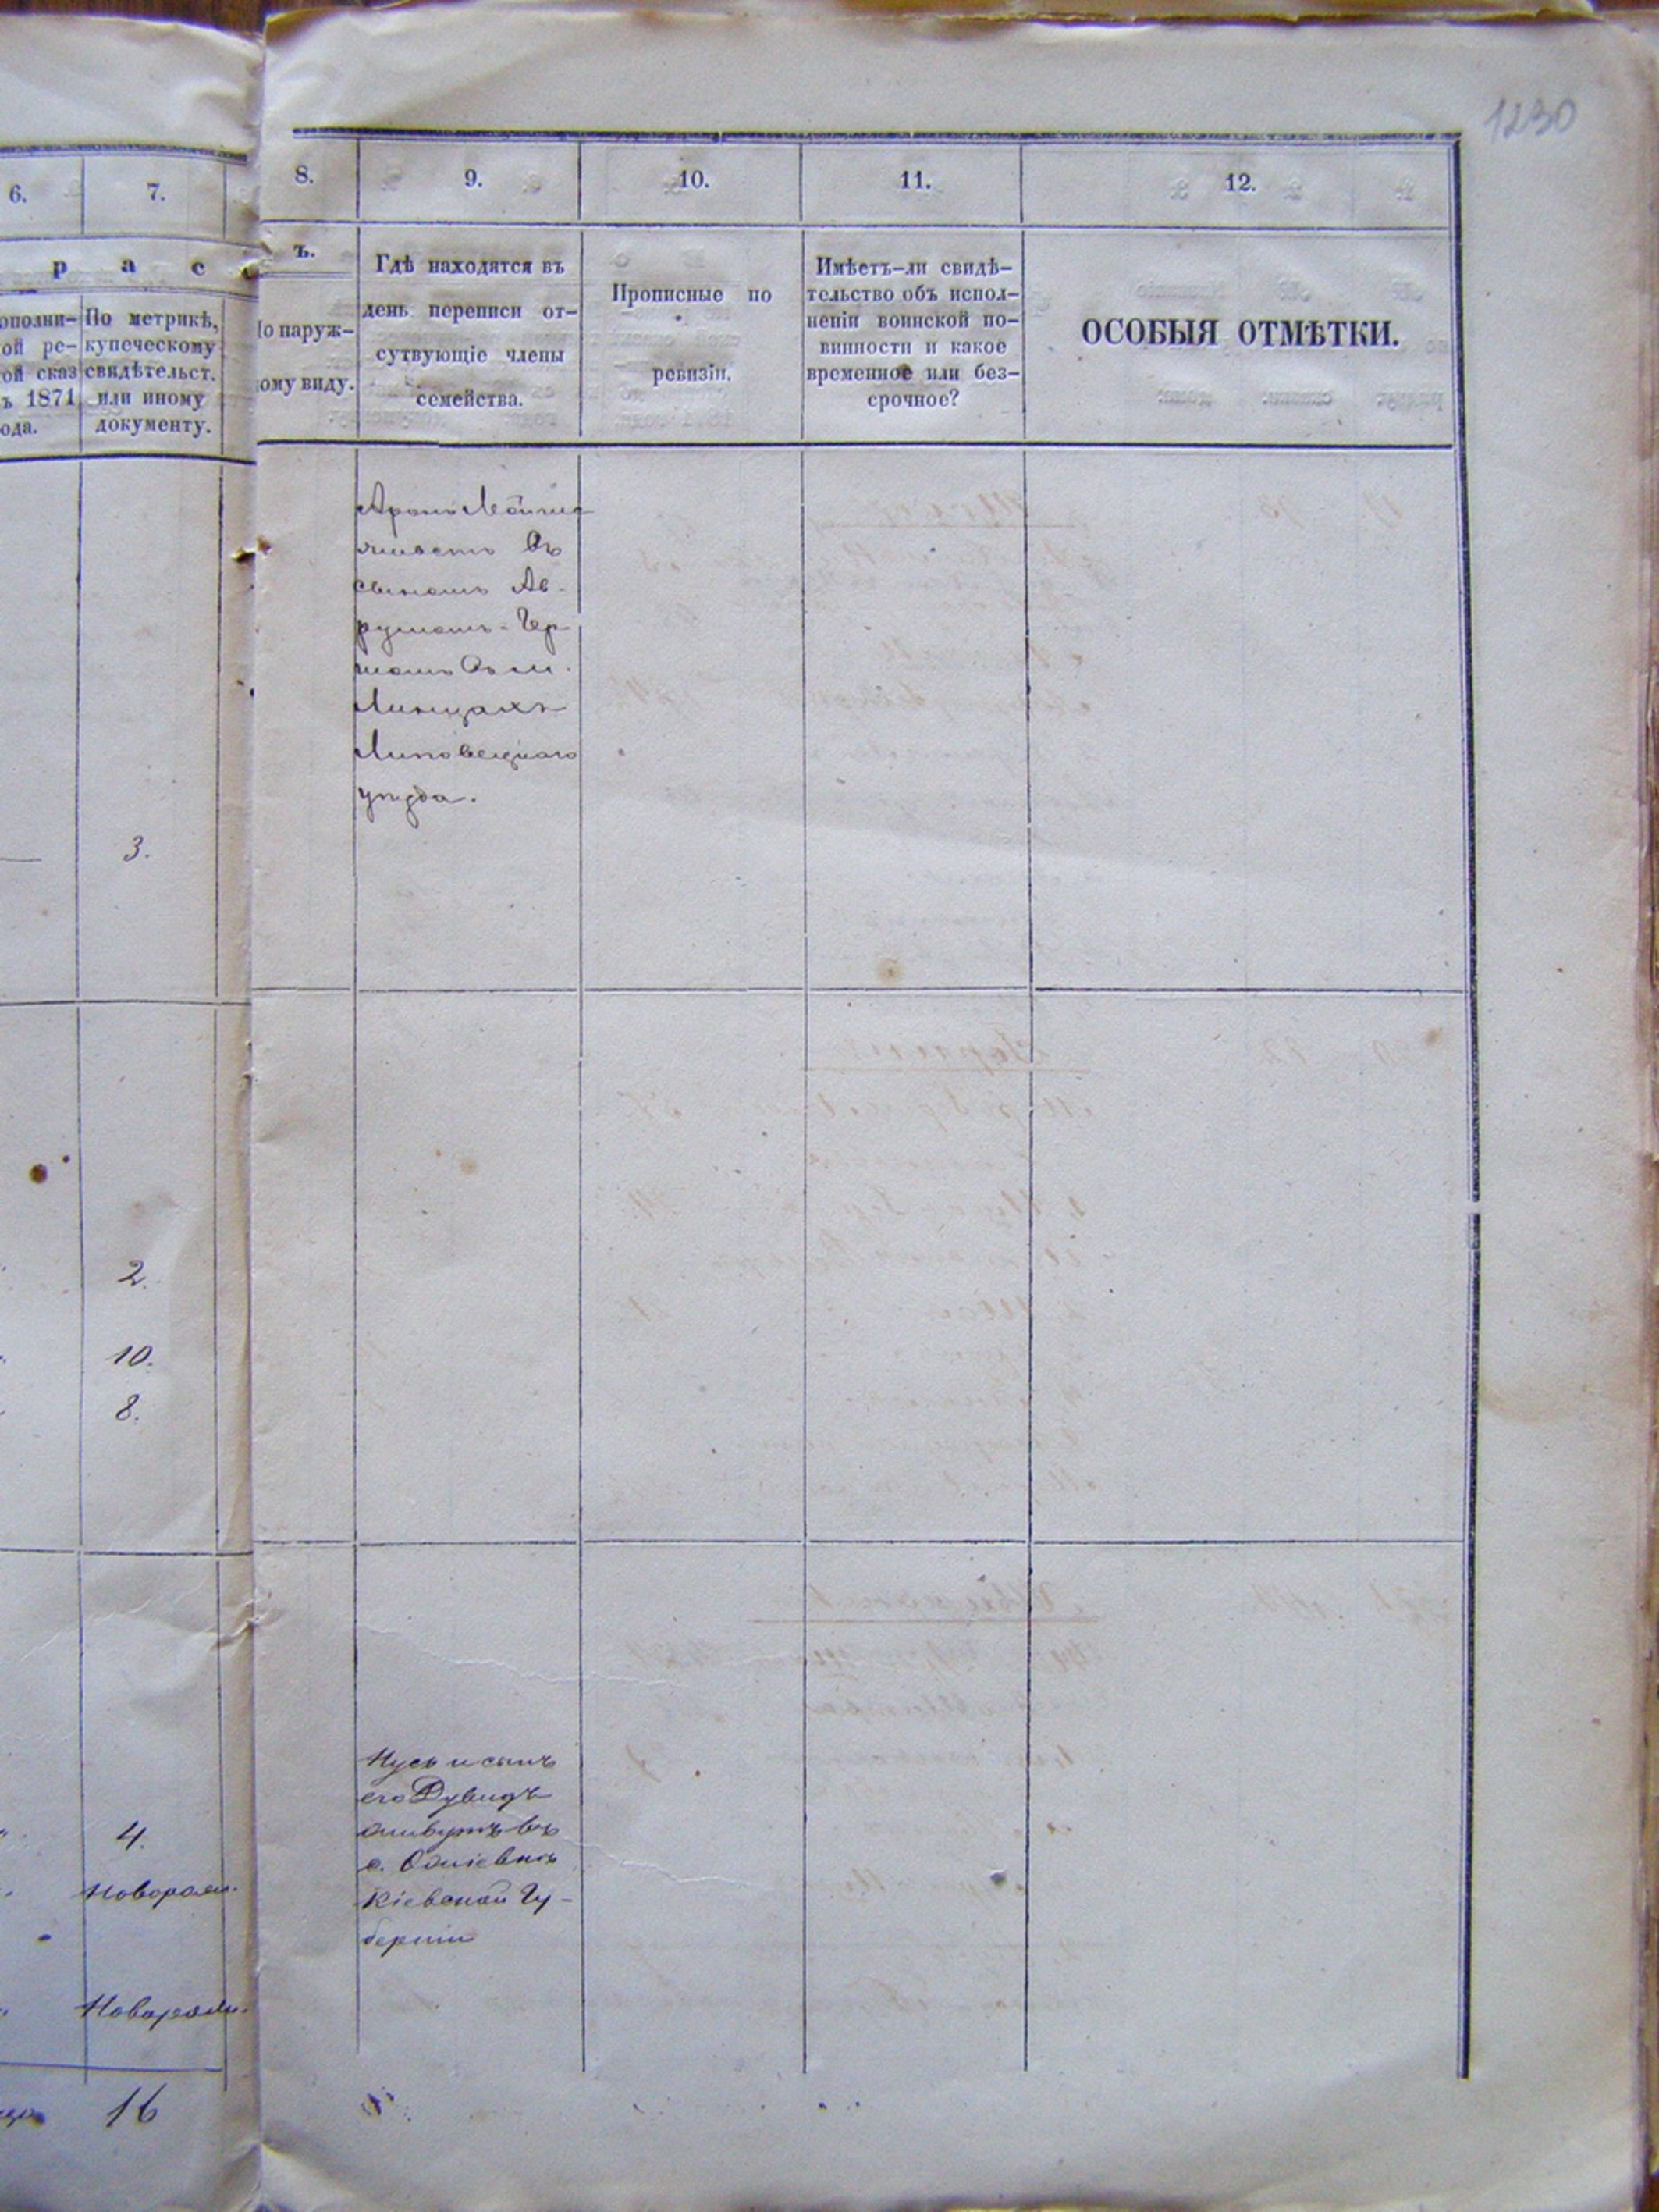 1230
6.
7.
8.
9.
10.
11.
12.
р а с
ъ.
ополни-
ой ре-
ой сказ
ъ 1871
ода.
По метрикѣ,
купеческому
свидѣтельст.
или иному
документу.
По наруж-
ному виду.
Гдѣ находятся въ
день переписи от-
сутвующіе члены
семейства.
Прописные по
ревизіи.
Имѣетъ-ли свидѣ-
тельство объ испол-
неніи воинской по-
винности и какое
временное или без-
срочное?
ОСОБЫЯ ОТМѢТКИ.
Аронъ
живетъ съ
сыномъ Ав-
румомъ-Гер
шомъ въ м.
Линцахъ
Липовецкаго
уѣзда.
3.
2.
10.
8.
Нусь и сынъ
его Дувидъ
живутъ въ
с.
Кіевской Гу-
берніи
4.
Новорож.
Новорож.
16